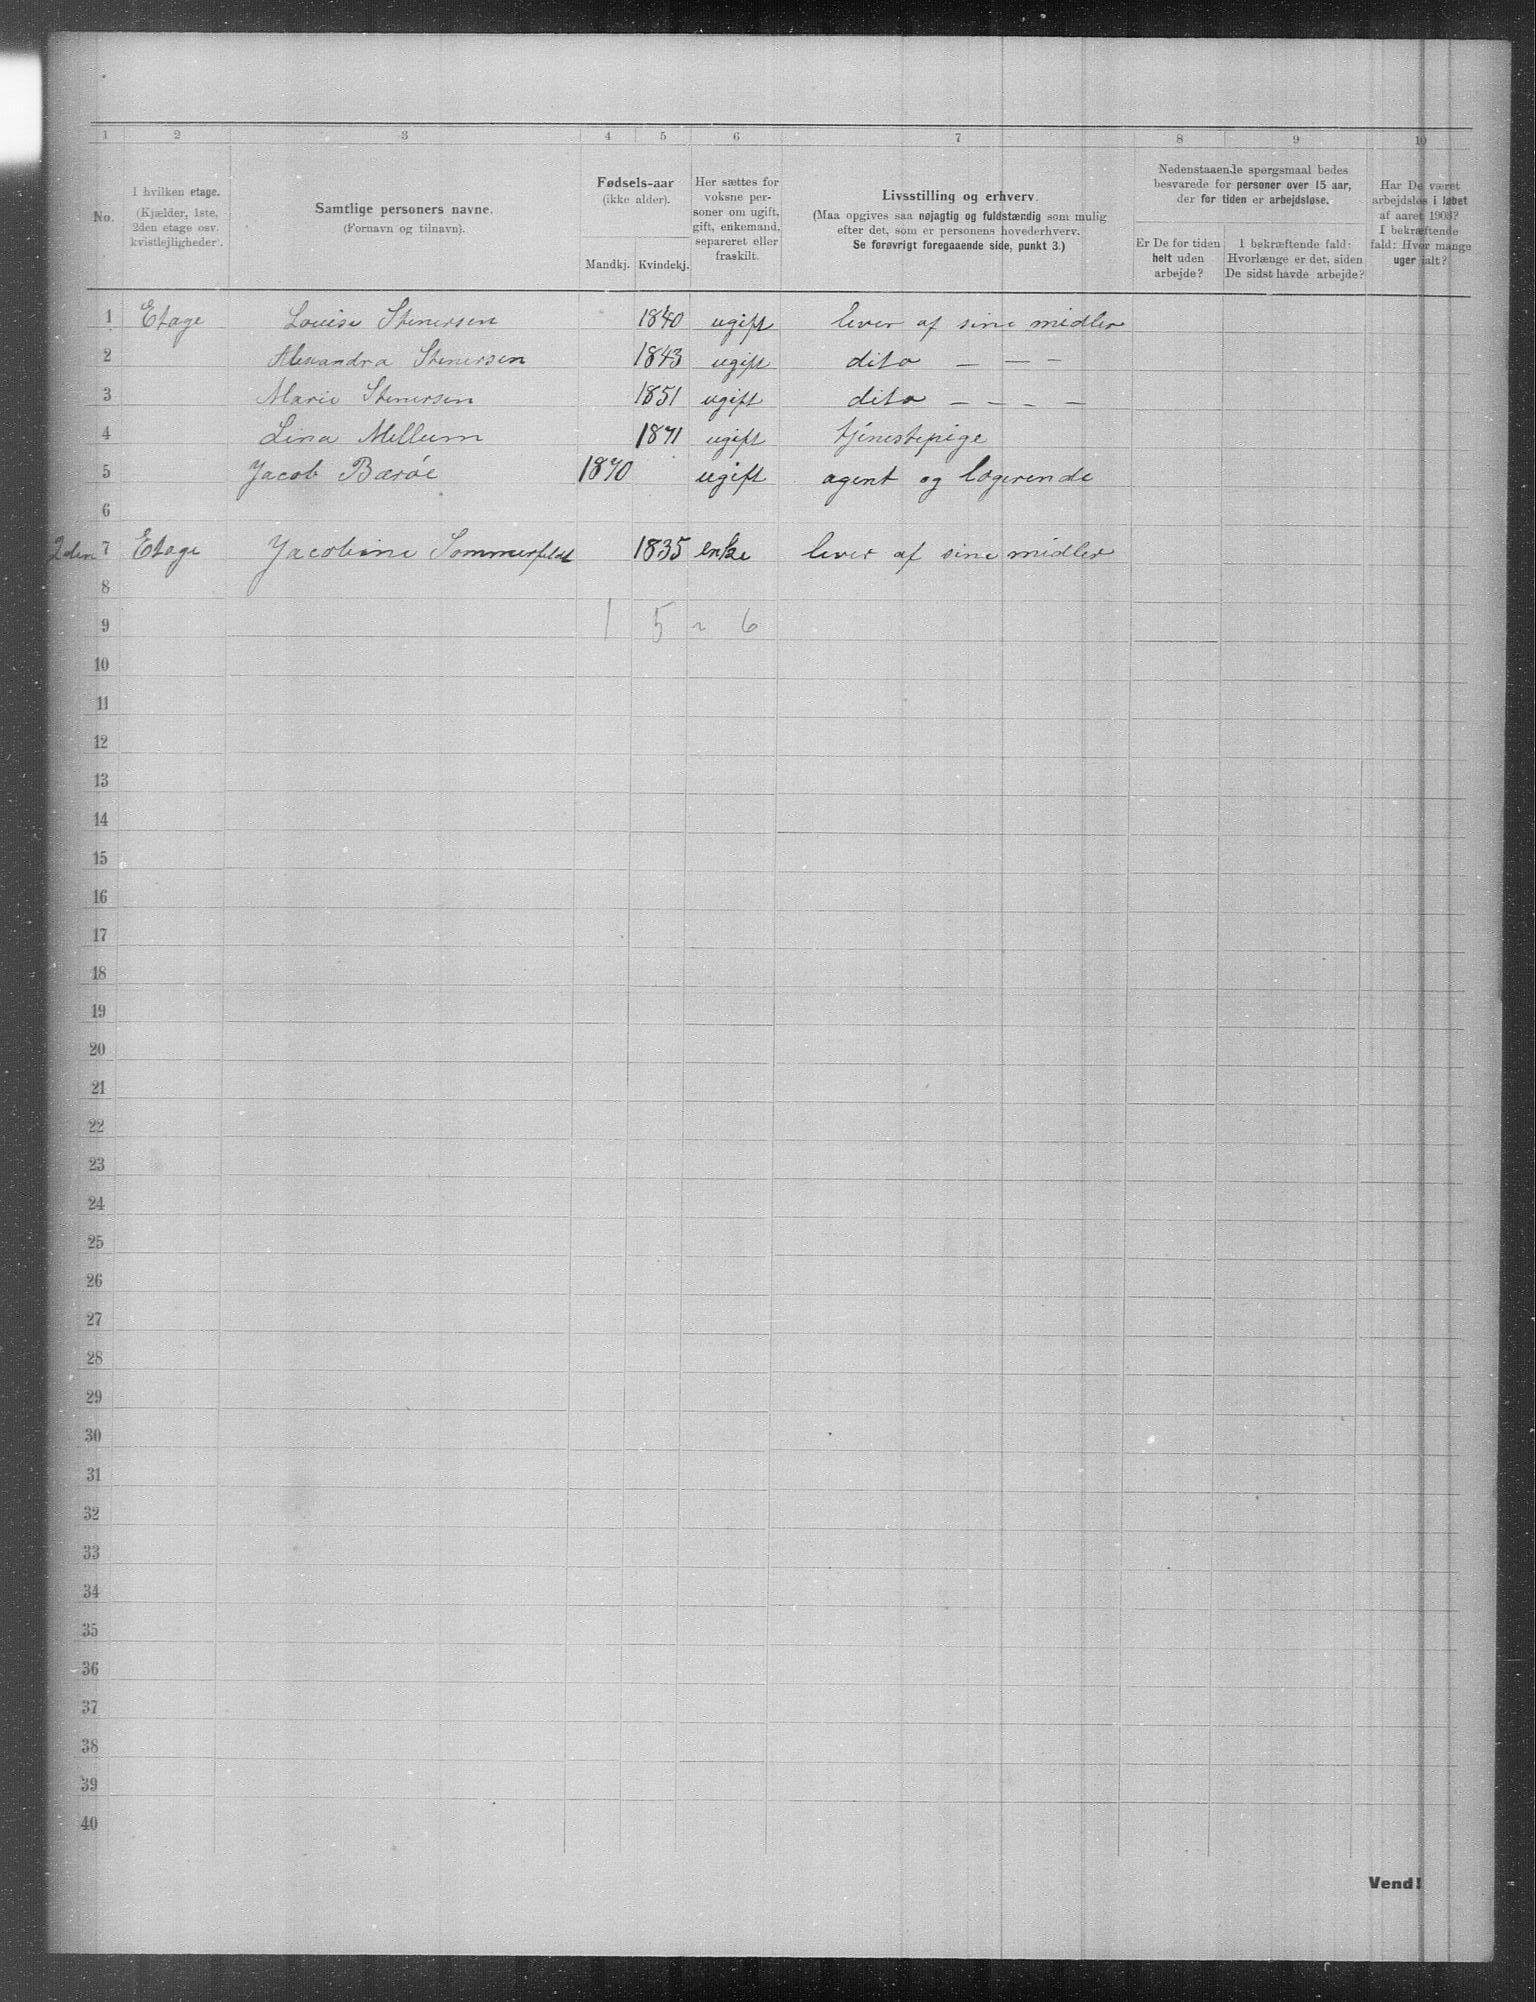 1 2 3 4 5 6 7 8 9 10
No.
I hvilken etage.
(Kjælder, 1ste,
2den etage osv.
kvistlejligheder).
Samtlige personers navne.
(Fornavn og tilnavn).
Fødsels-aar
(ikke alder).
Mandkj. Kvindekj.
Her sættes for
voksne per-
soner om ugift,
gift, enkemand,
separeret eller
fraskilt.
Livsstilling og erhverv.
(Maa opgives saa nøjagtig og fuldstændig som mulig
efter det, som er personens hovederhverv.
Se forøvrigt foregaaende side, punkt 3.)
Nedenstaaende spørgsmaal bedes
besvarede for personer over 15 aar,
der for tiden er arbejdsløse.
Er De for tiden
helt uden
arbejde?
I bekræftende fald:
Hvorlænge er det, siden
De sidst havde arbejde?
Har De været
arbejdsløs i løbet
af aaret 1903?
I bekræftende
fald: Hvor mange
uger ialt?
1 Etage Louise Stenersen 1840 ugift lever af sine midler
2 Alexandra Stenersen 1843 ugift dito — — —
3 Marie Stenersen 1851 ugift dito — — — —
4 Lina Mellum 1871 ugift tjenestepige
5 Jacob Barøe 1870 ugift agent og logerende
6
2den 7 Etage Jacobine Sommerfeldt 1835 enke lever af sine midler
8
9 1 5 ~ 6
10
11
12
13
14
15
16
17
18
19
20
21
22
23
24
25
26
27
28
29
30
31
32
33
34
35
36
37
38
39
40
Vend!